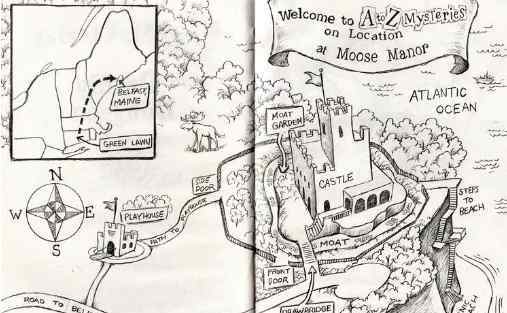 Welcome to A to Z Mysteries
on Location
at Moose Manor
BELFAST,
MAINE
GREEN LAWN
ATLANTIC
OCEAN
MOAT
GARDEN
CASTLE
SIDE
DOOR
N
W
E
S
PLAYHOUSE
PATH TO PLAYHOUSE
STEPS
TO
BEACH
MOAT
FRONT
DOOR
DRAWBRIDGE
ROAD TO